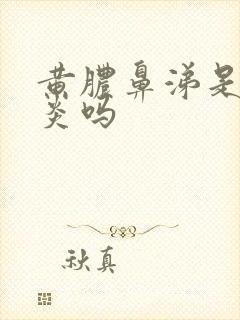 黄膿鼻涕是
炎吗
秋真